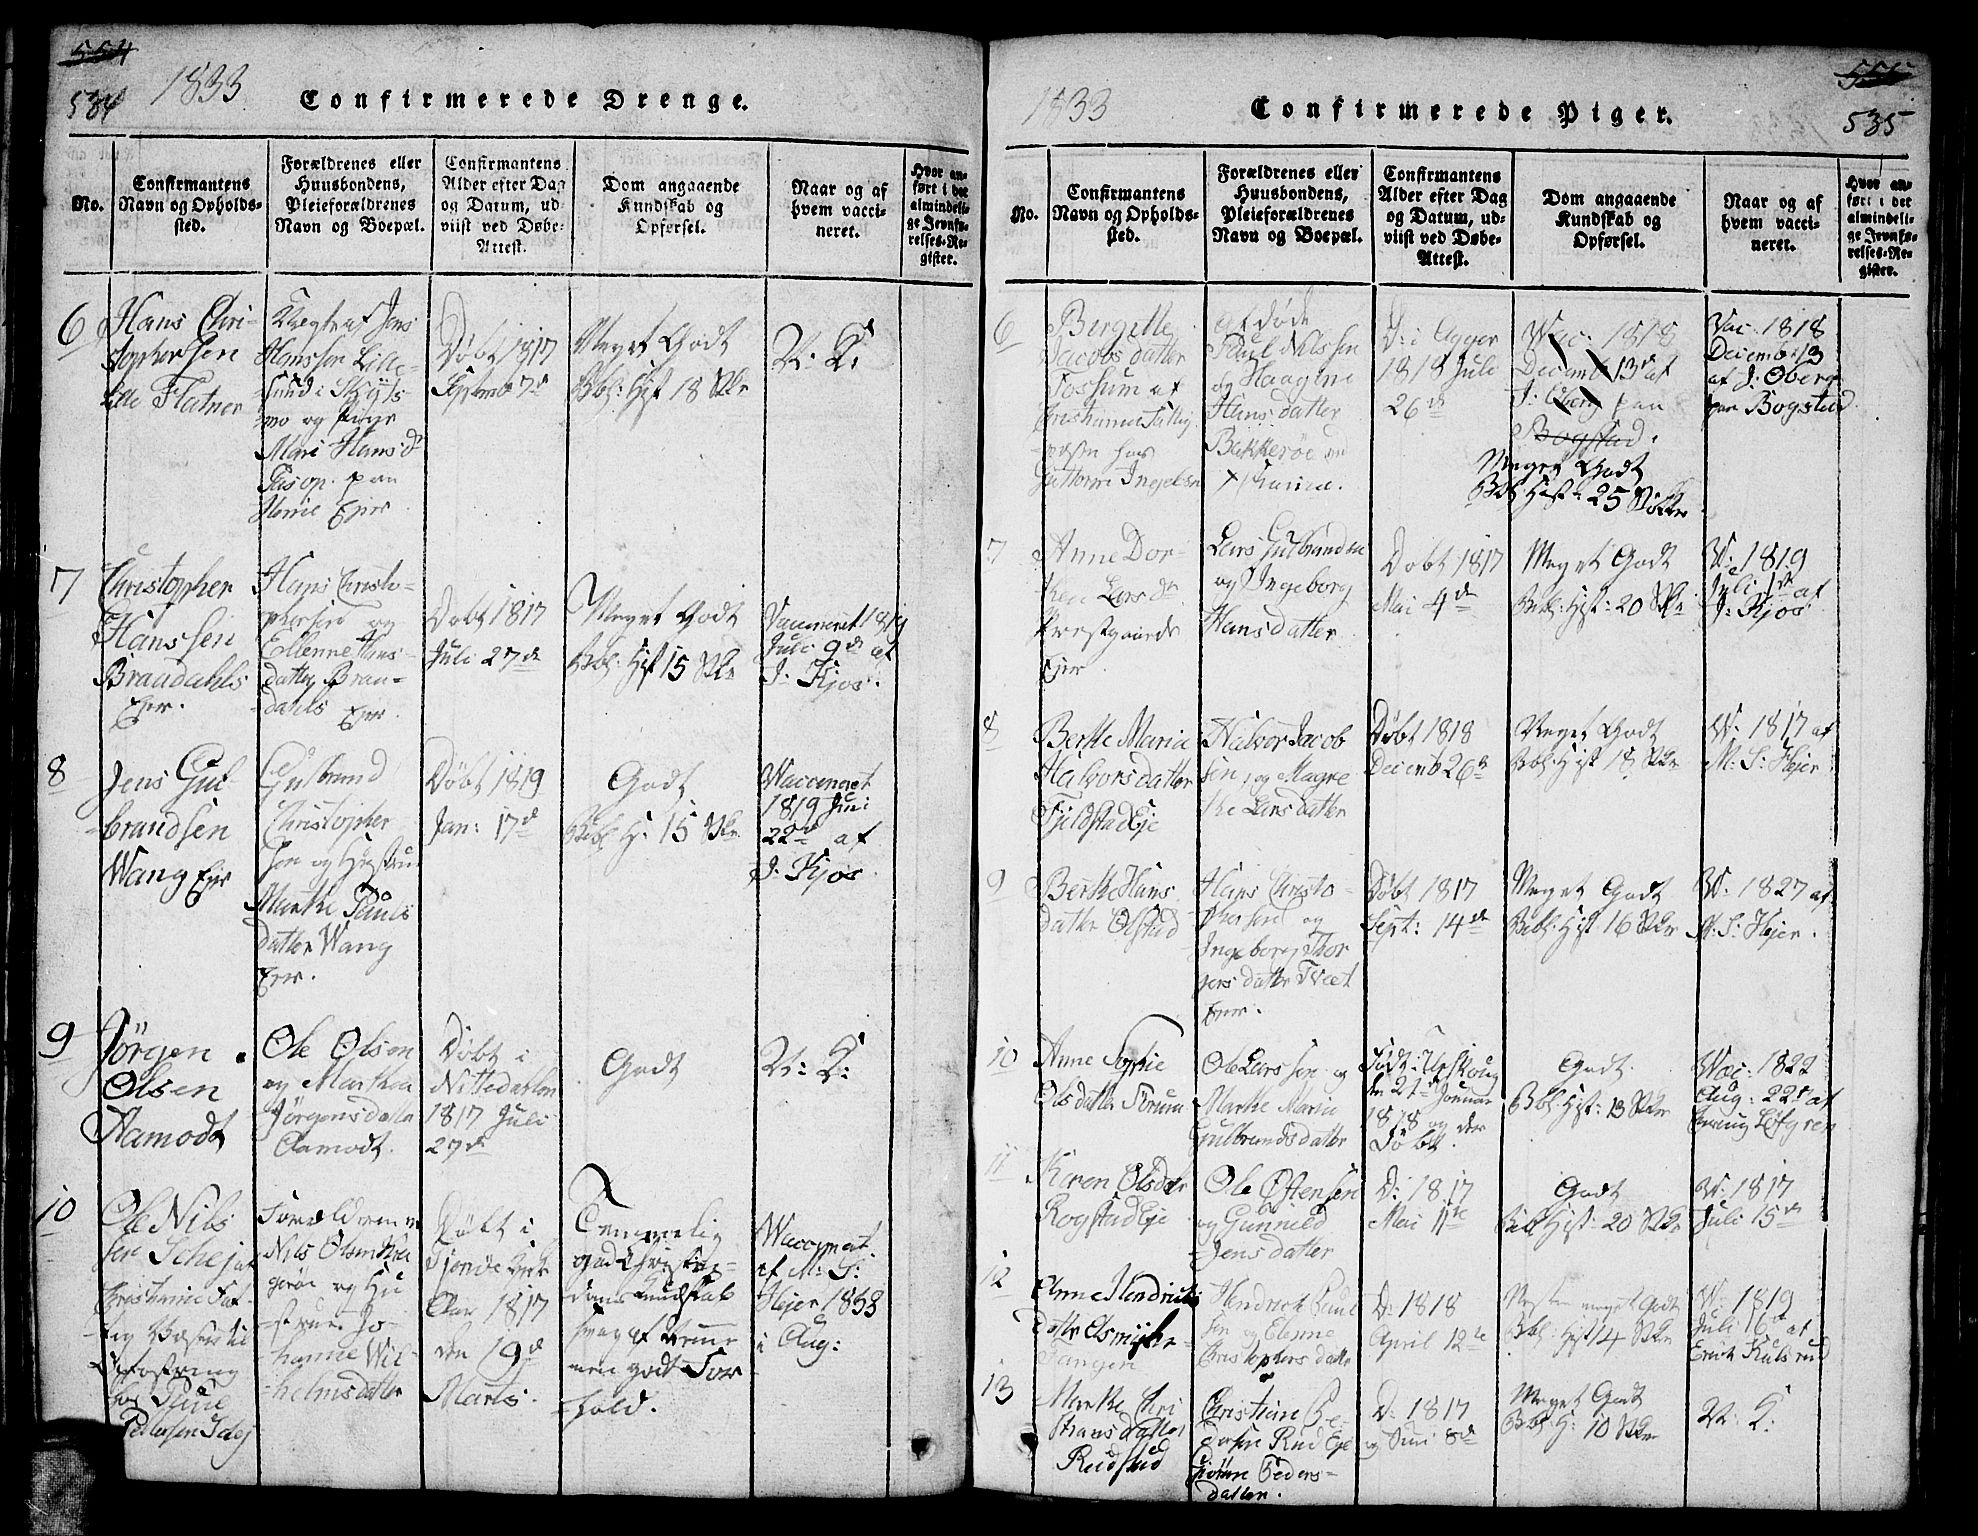 534
1833
Confirmerede Drenge.
No.
Confirmantens
Navn og Opholds-
sted.
Forældrenes eller
Huusbondens,
Pleieforældrenes
Navn og Boepæl.
Confirmantens
Alder efter Dag
og Datum, ud-
viist ved Døbe-
Attest.
Dom angaaende
Kundskab og
Opførsel.
Naar og af
hvem vacci-
neret.
Hvor an-
ført i det
almindeli-
ge Jevnfø-
relses-Re-
gister.
6
Hans Chri-
stophersen
Lille Flatner
Hanssen Lille-
og Pige
Mari Hansd
paa
Eier
Døbt 1817
Septemb 7de
Meget Godt
Bibl: Hist 18 Stkr
N: K:
7
Christopher
Hanssen
Braadahls
Eier.
Hans Christo-
phersen og
Ellenne Hans-
datter Braa-
dahls Eier.
Døbt 1817
Juli 27de
Meget Godt
Bibl: Hist 15 Stkr
Vaccineret 1819
Juli 9de af
J: Kjos.
8
Jens Gul-
brandsen
Wang Eier
Gulbrand
Christopher
sen og Hustru
Marthe Pauls
datter Wang
Eier.
Døbt 1819
Jan: 17de
Godt
Bibl H: 15 Stkr.
Waccineret
1819 Juni
22de af
J. Kjos.
9
Jörgen
Olsen
Aamodt
Ole Olsen
og Marthea
Jörgensdatter
Aamodt.
Döbt i
Nittedahlen
1817 Juli
27de
Godt
N: K:
10
Ole Nils
sen Schej
Christianie Fat-
tig
Opfostring
hos Paul
Pettersen Schej
Forældrene
Nils Olsen
og Hu-
strue Jo-
hanne Wil-
helmsdatter
Døbt i
Aar 1817
den 19de
Marts.
Temmelig
god Christen-
doms Kundskab
godt For
hold.
Waccineret
af M: S:
Hejer 1833
i Aug:
1833
Confirmerede Piger.
535
No.
Confirmantens
Navn og Opholds-
sted.
Forældrenes eller
Huusbondens,
Pleieforældrenes
Navn og Boepæl.
Confirmantens
Alder efter Dag
og Datum, ud-
viist ved Døbe-
Attest.
Dom angaaende
Kundskab og
Opførsel.
Naar og af
hvem vacci-
neret.
Hvor an-
ført i det
almindeli-
ge Jevnfø-
relses-Re-
gister.
6
Birgette
Jacobsdatter
Fossum af
Christiania Fattig
hos
Guttorm Ingelsen
Afdøde
Paul Nilssen
og Haagine
Hansdatter
Bekkerøe ved
D: i Agger
1818 Juli
26de
Wac: 1818
Decemb 13de af
J: Oberg paa
Bogstad.
Meget Godt
Bibl Hist: 25 Stkr
Vac: 1818
Decemb: 13
af J: Oberg
paa Bogstad.
7
Anne Dor-
thea Lars Dr
Prestgaards
Eier
Lars Gulbrandsen
og Ingeborg
Hansdatter
Døbt 1817
Mai 4de
Meget Godt
Bibl: Hist: 20 Stkr
W: 1819
Juli 1ste af
J: Kjos.
8
Berthe Maria
Halvorsdatter
Fjeldstad Eje
Halvor Jacob
sen, og Magre
the Larsdatter
Døbt 1818
Decemb 26de
Meget Godt
Bibl: Hist 18 Stkr
W: 1817 af
M: S: Hejer.
9
Berthe Hans
datter Olstad
Hans Christo-
phersen og
Ingeborg Thor
gersdatter Tveet
Eier.
Døbt 1817
Sept: 14de
Meget Godt
Bibl: Hist 16 Stkr
W: 1827 af
M: S: Hejer.
10
Anne Sophie
Olsdatter
Ole Larssen og
Marthe Maria
Gulbrandsdatter
Født i
den 21de Januar
1818 og der
Døbt.
Godt.
Bibl: Hist: 13 Stkr
Wac: 1822
Aug: 22de af
Löfgren
11
Karen Olsdatter
Rogstad Eje
Ole Ostensen
og Gunnild
Jensdatter
D: 1817
Mai 11te
Godt
Bibl Hist: 20 Stkr
W: 1817
Juli 15de
12
Anne Hendriks
datter
Tangen
Hendrick Paul
sen og Elenne
Christophersdatter
D: 1818
April 12te
Nesten meget Godt
Bibl: Hist 14 Stkr
W: 1819
Juli 16de af
Erick Kulsrud
13
Marthe Chri
stiansdatter
Rudstad
Christian Pe-
dersen Rud Eje
og
Peders-
datter.
D: 1817
Juni 8de
Meget Godt
Bibl: H: 10 Stkr
N: K: